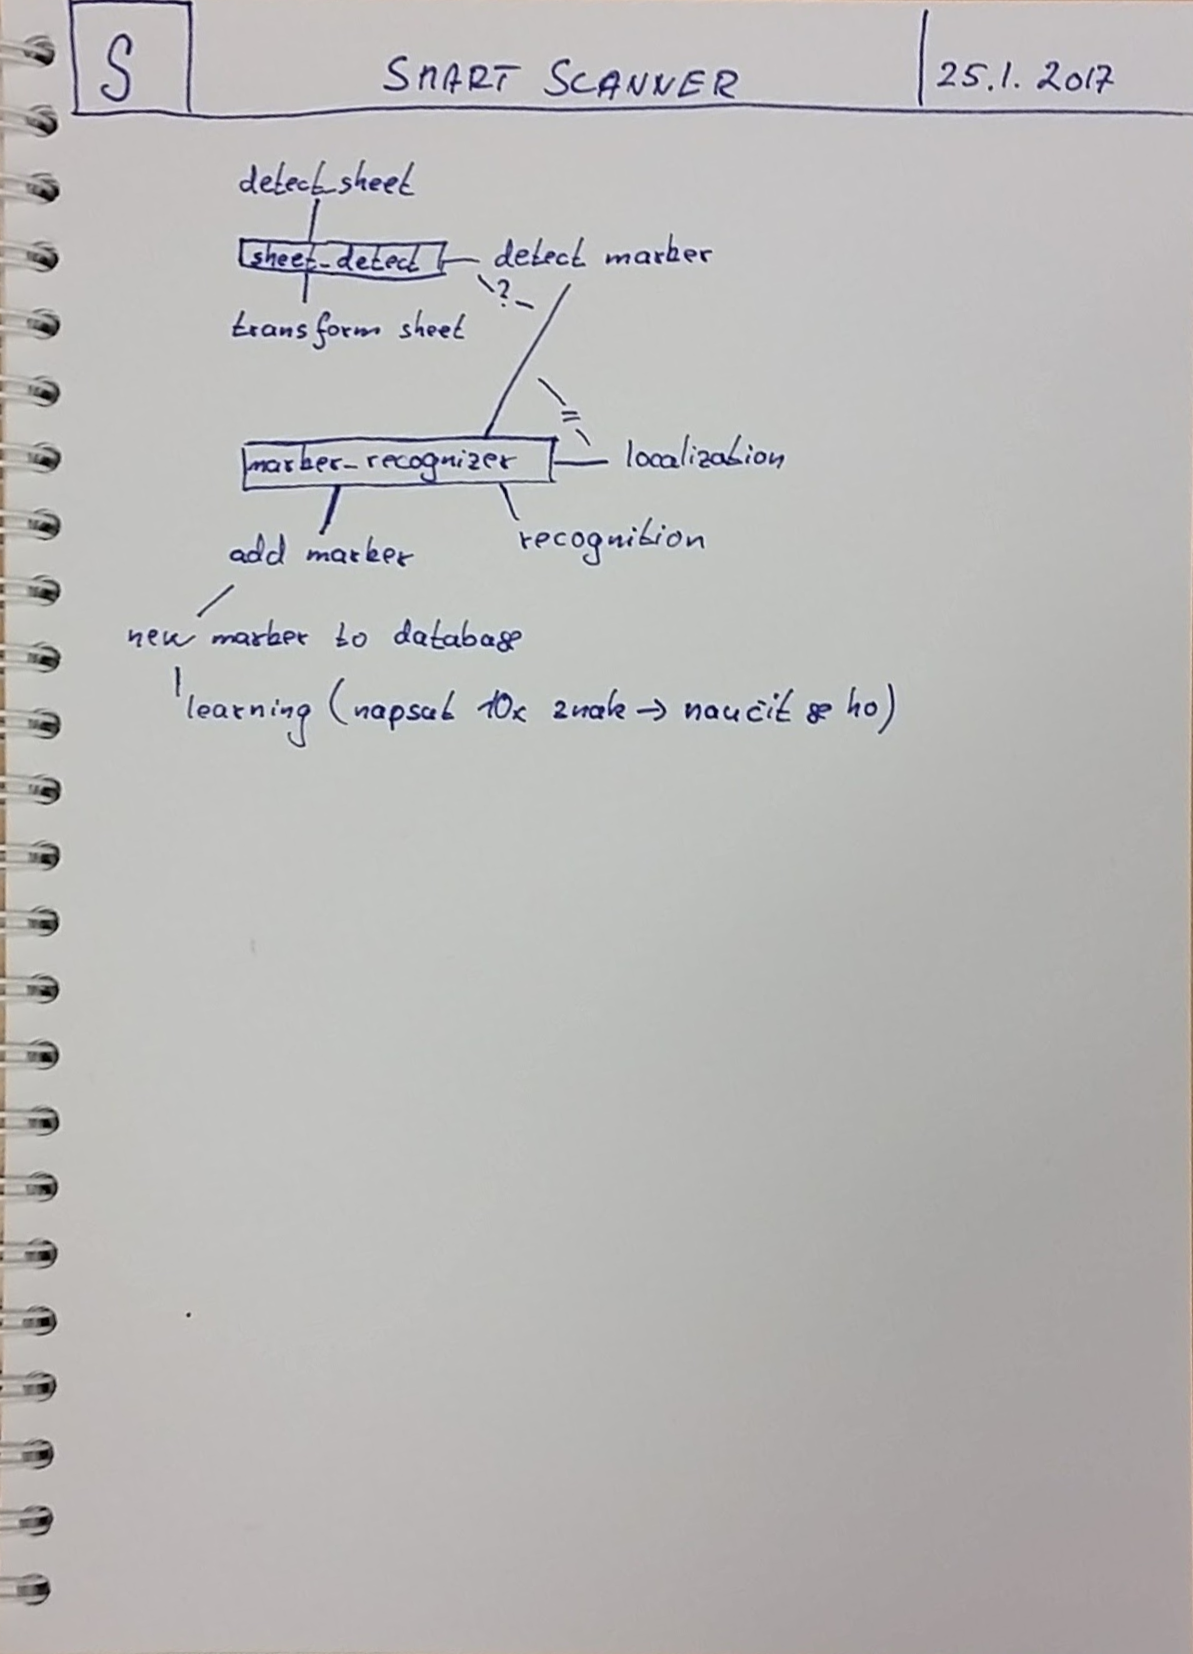 S SMART SCANNER 25.1. 2017
detect sheet
sheet_detect detect marker
?
transform sheet
=
marker_recognizer localization
add marker recognition
new marker to database
learning (napsat 10x znak → naučit se ho)